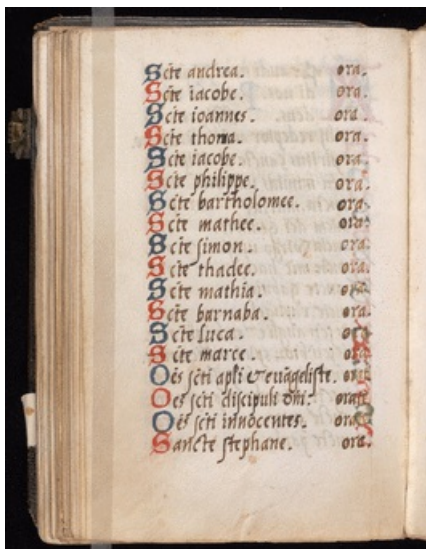 Scte andrea. ora.
Scte iacobe. ora.
Scte ioannes. ora.
Scte thoma. ora.
Scte iacobe. ora.
Scte philippe. ora.
Scte bartholomee. ora.
Scte mathee. ora.
Scte simon. ora.
Scte thadee. ora.
Scte mathia. ora.
Scte barnaba. ora.
Scte luca. ora.
Scte marce. ora.
Oẽs scti apli & euãgeliste. ora.
Oẽs scti discipuli dñi. orate
Oẽs scti innocentes. orate
Sancte stephane. ora.